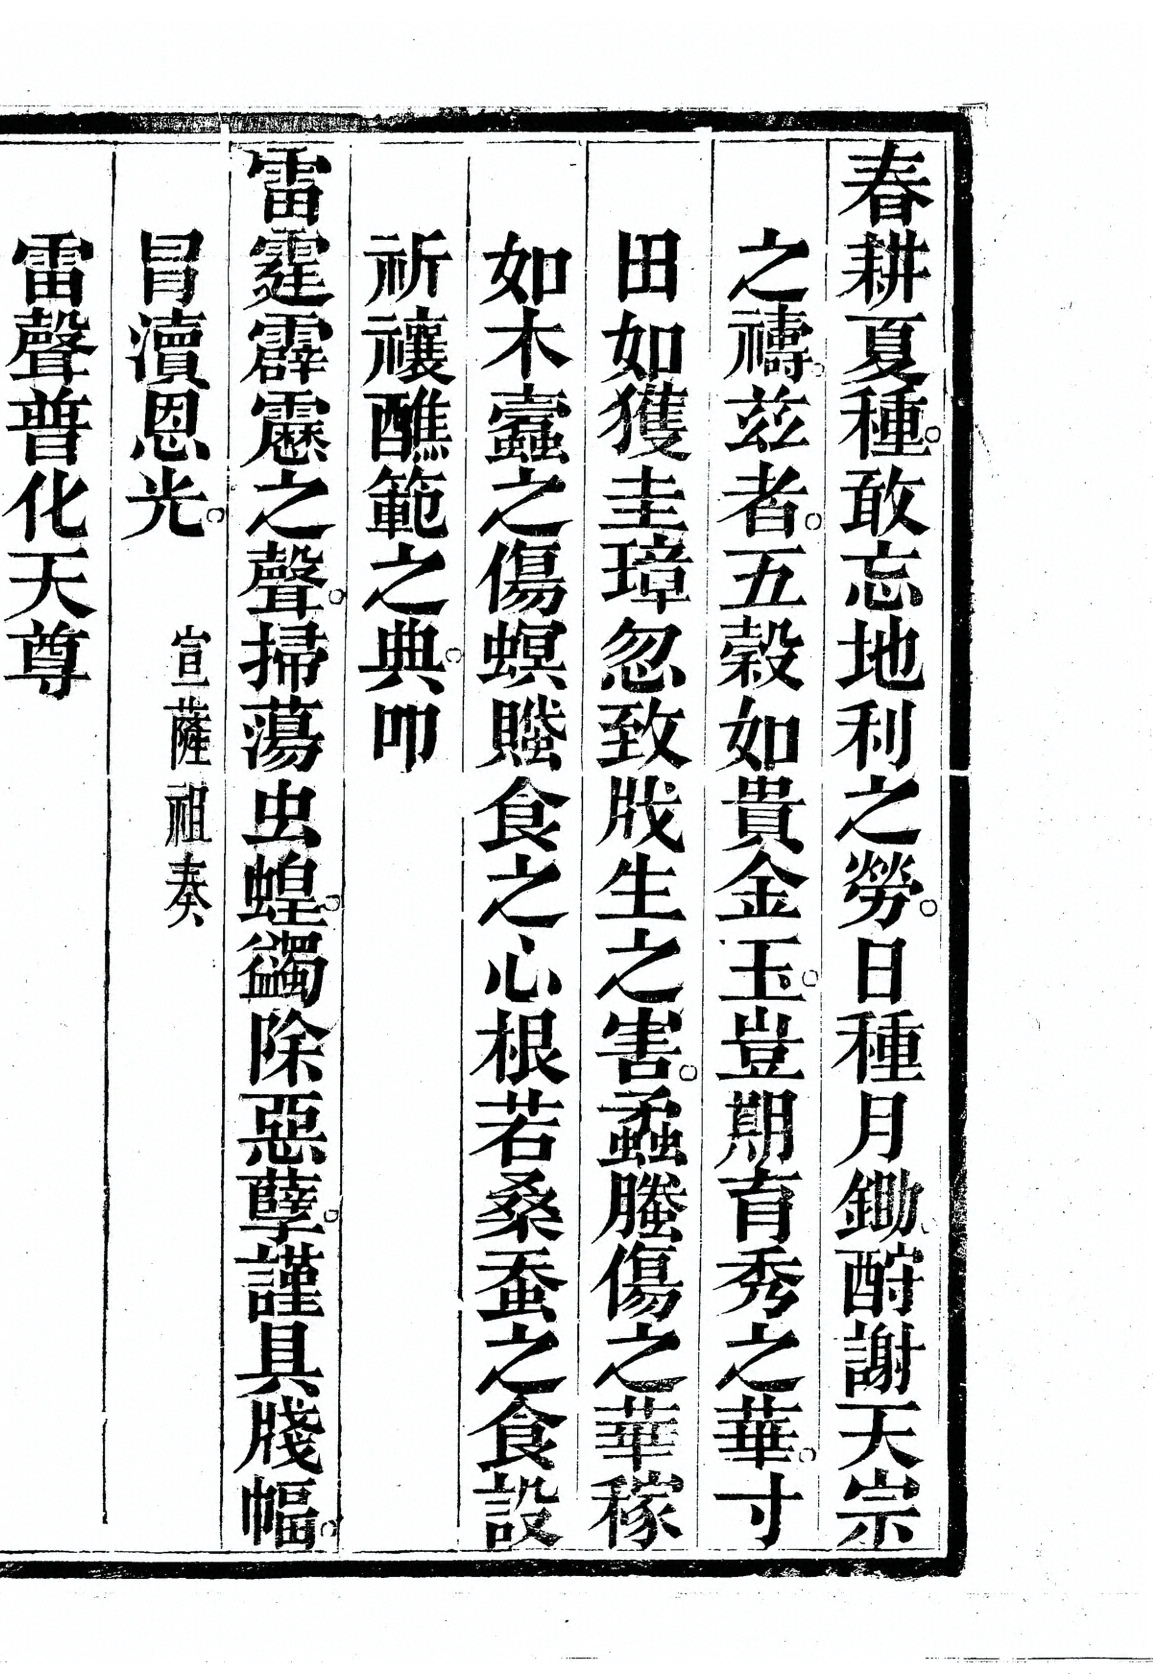 春耕夏種。敢忘地利之勞。日種月鋤。酧謝天宗
之禱。茲者。五穀如貴金玉。豈期育秀之華。寸
田如獲圭璋忽致戕生之害。蟊螣傷之華稼
如木蠹之傷螟螣食之心根若桑蚕之食設
祈禳醮範之典。叩
雷霆霹靂之聲。掃蕩虫蝗。蠲除惡孽。謹具牋幅。
冐瀆恩光。 宣薩祖奏
雷聲普化天尊